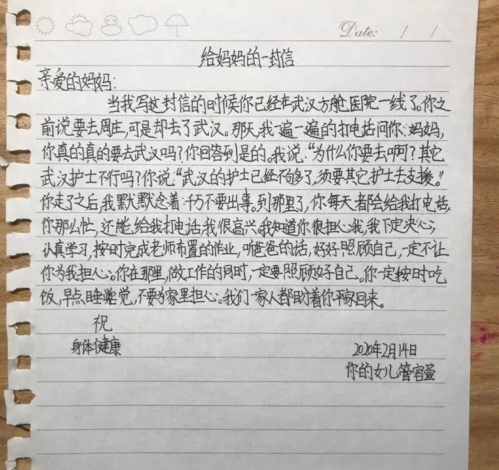 Date: / /
给妈妈的一封信
亲爱的妈妈:
当我写这封信的时候你已经在武汉方舱医院一线了。你之
前说要去周庄,可是却去了武汉。那天我一遍一遍的打电话问你:妈妈,
你真的真的要去武汉吗?你回答到是的。我说:“为什么你要去啊?其它
武汉护士不行吗?你说:“武汉的护士已经不够了,须要其它护士去支援。”
你走了之后,我默默念着:千万不要出事。到那里了,你每天都会给我打电话,
你那么忙,还能给我打电话,我很高兴。我知道你很担心我,我下定决心:
认真学习,按时完成老师布置的作业,听爸爸的话,好好照顾自己,一定不让
你为我担心。你在那里,做工作的同时,一定要照顾好自己。你一定按时吃
饭,早点睡觉,不要为家里担心。我们一家人都盼着你平安回来。
祝
身体健康
2020年2月14日
你的女儿管容萱